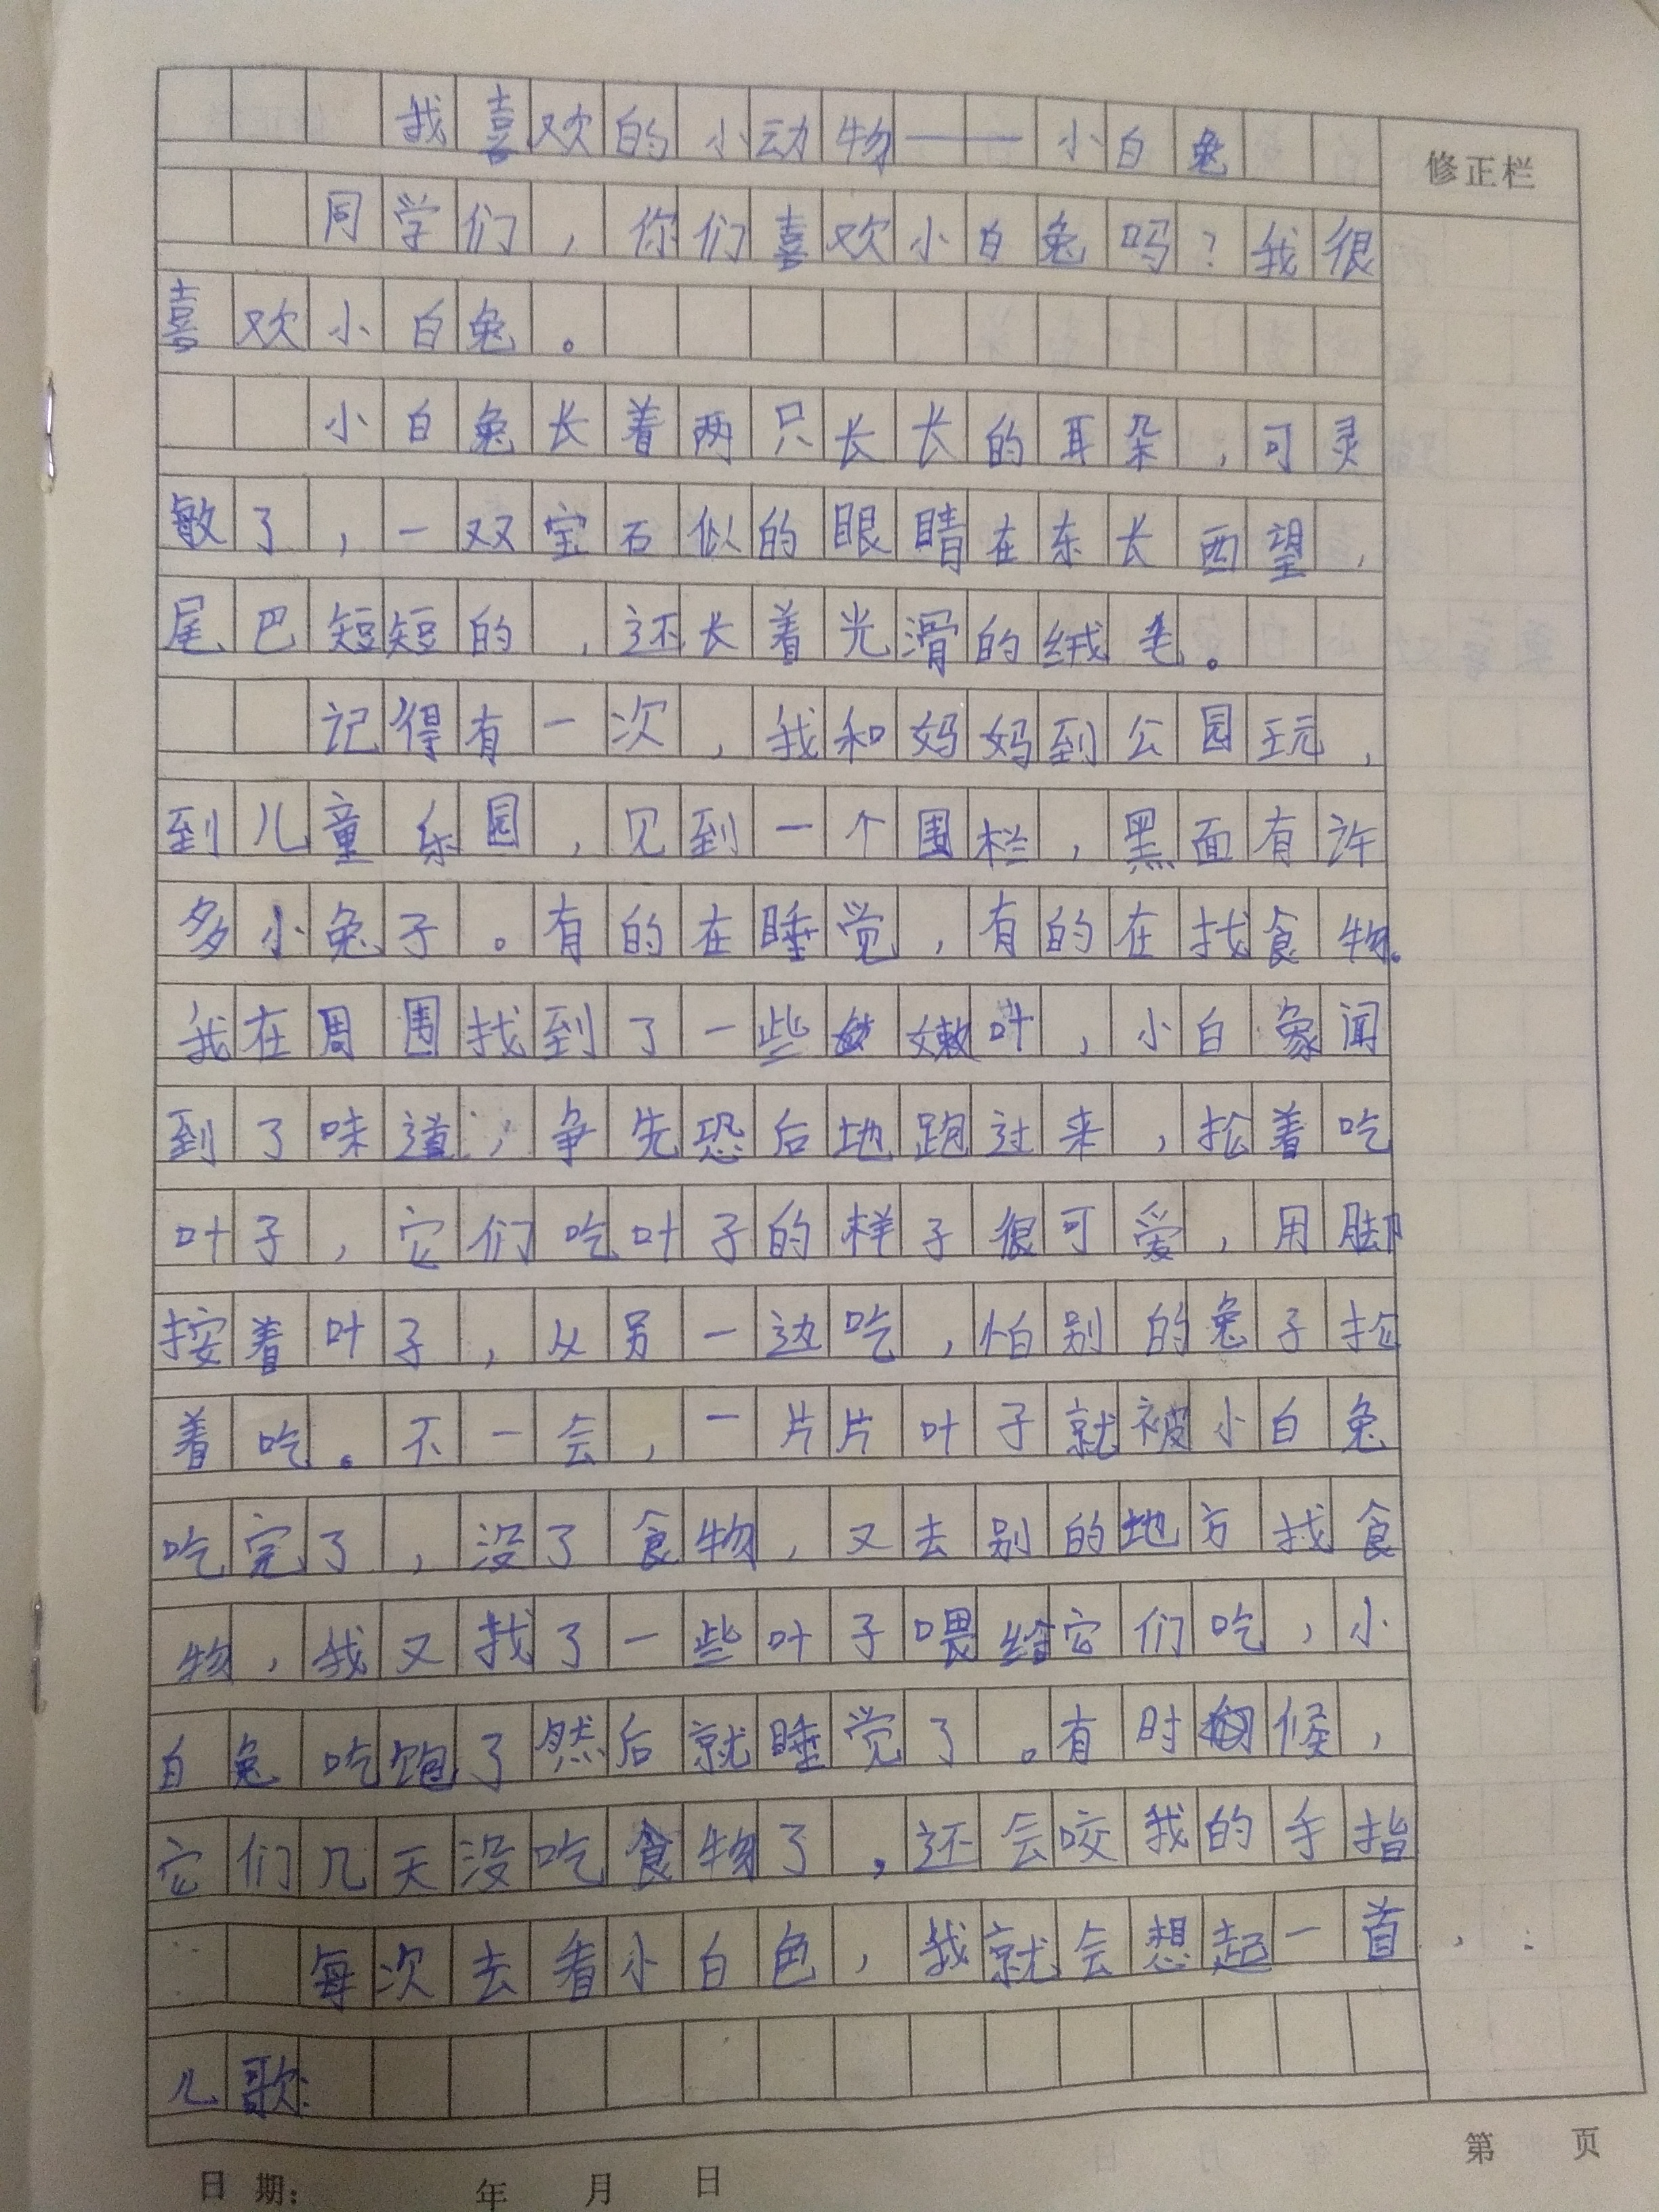 我喜欢的小动物——小白兔
修正栏
同学们，你们喜欢小白兔吗？我很
喜欢小白兔。
小白兔长着两只长长的耳朵，可灵
敏了，一双宝石似的眼睛在东长西望，
尾巴短短的，还长着光滑的绒毛。
记得有一次，我和妈妈到公园玩，
到儿童乐园，见到一个围栏，黑面有许
多小兔子。有的在睡觉，有的在找食物。
我在周围找到了一些嫩叶，小白象闻
到了味道，争先恐后地跑过来，抢着吃
叶子，它们吃叶子的样子很可爱，用脚
按着叶子，从另一边吃，怕别的兔子抢
着吃。不一会，一片片叶子就被小白兔
吃完了，没了食物，又去别的地方找食
物，我又找了一些叶子喂给它们吃，小
白兔吃饱了然后就睡觉了。有时候，
它们几天没吃食物了，还会咬我的手指
每次去看小白色，我就会想起一首
儿歌：
日期： 年 月 日
第 页